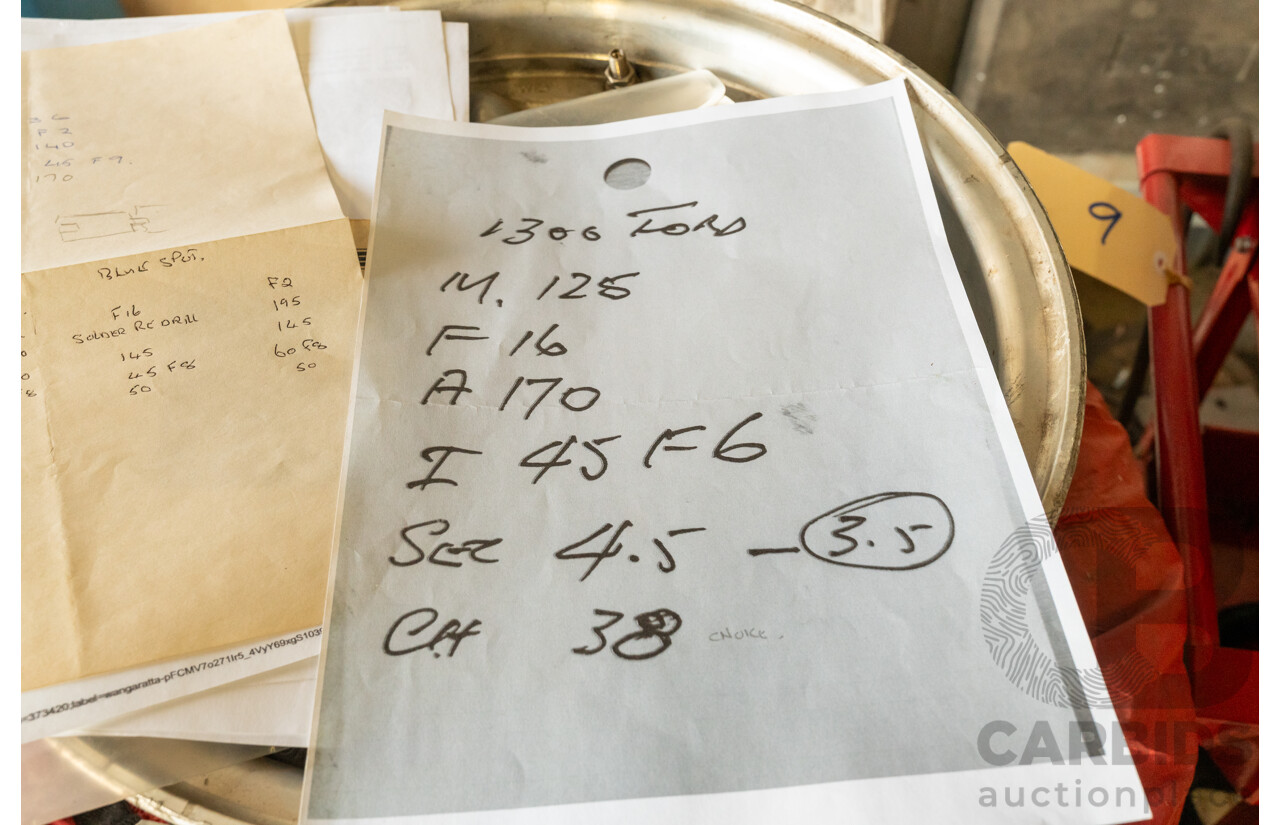 36
F2
140
45 F9.
170
BLUE SPOT.
F16
SOLDER RE DRILL
145
45 F8
50
F2
195
145
60 F8
50
=373420;label=wangaratta-pFCMV7o271Ir5_4VyY69xgS103
1300 FORD
M. 125
F 16
A 170
I 45 F6
SEC 4.5 – 3.5
CH 38 CHOKE.
9
CARBIDS
auctionplace